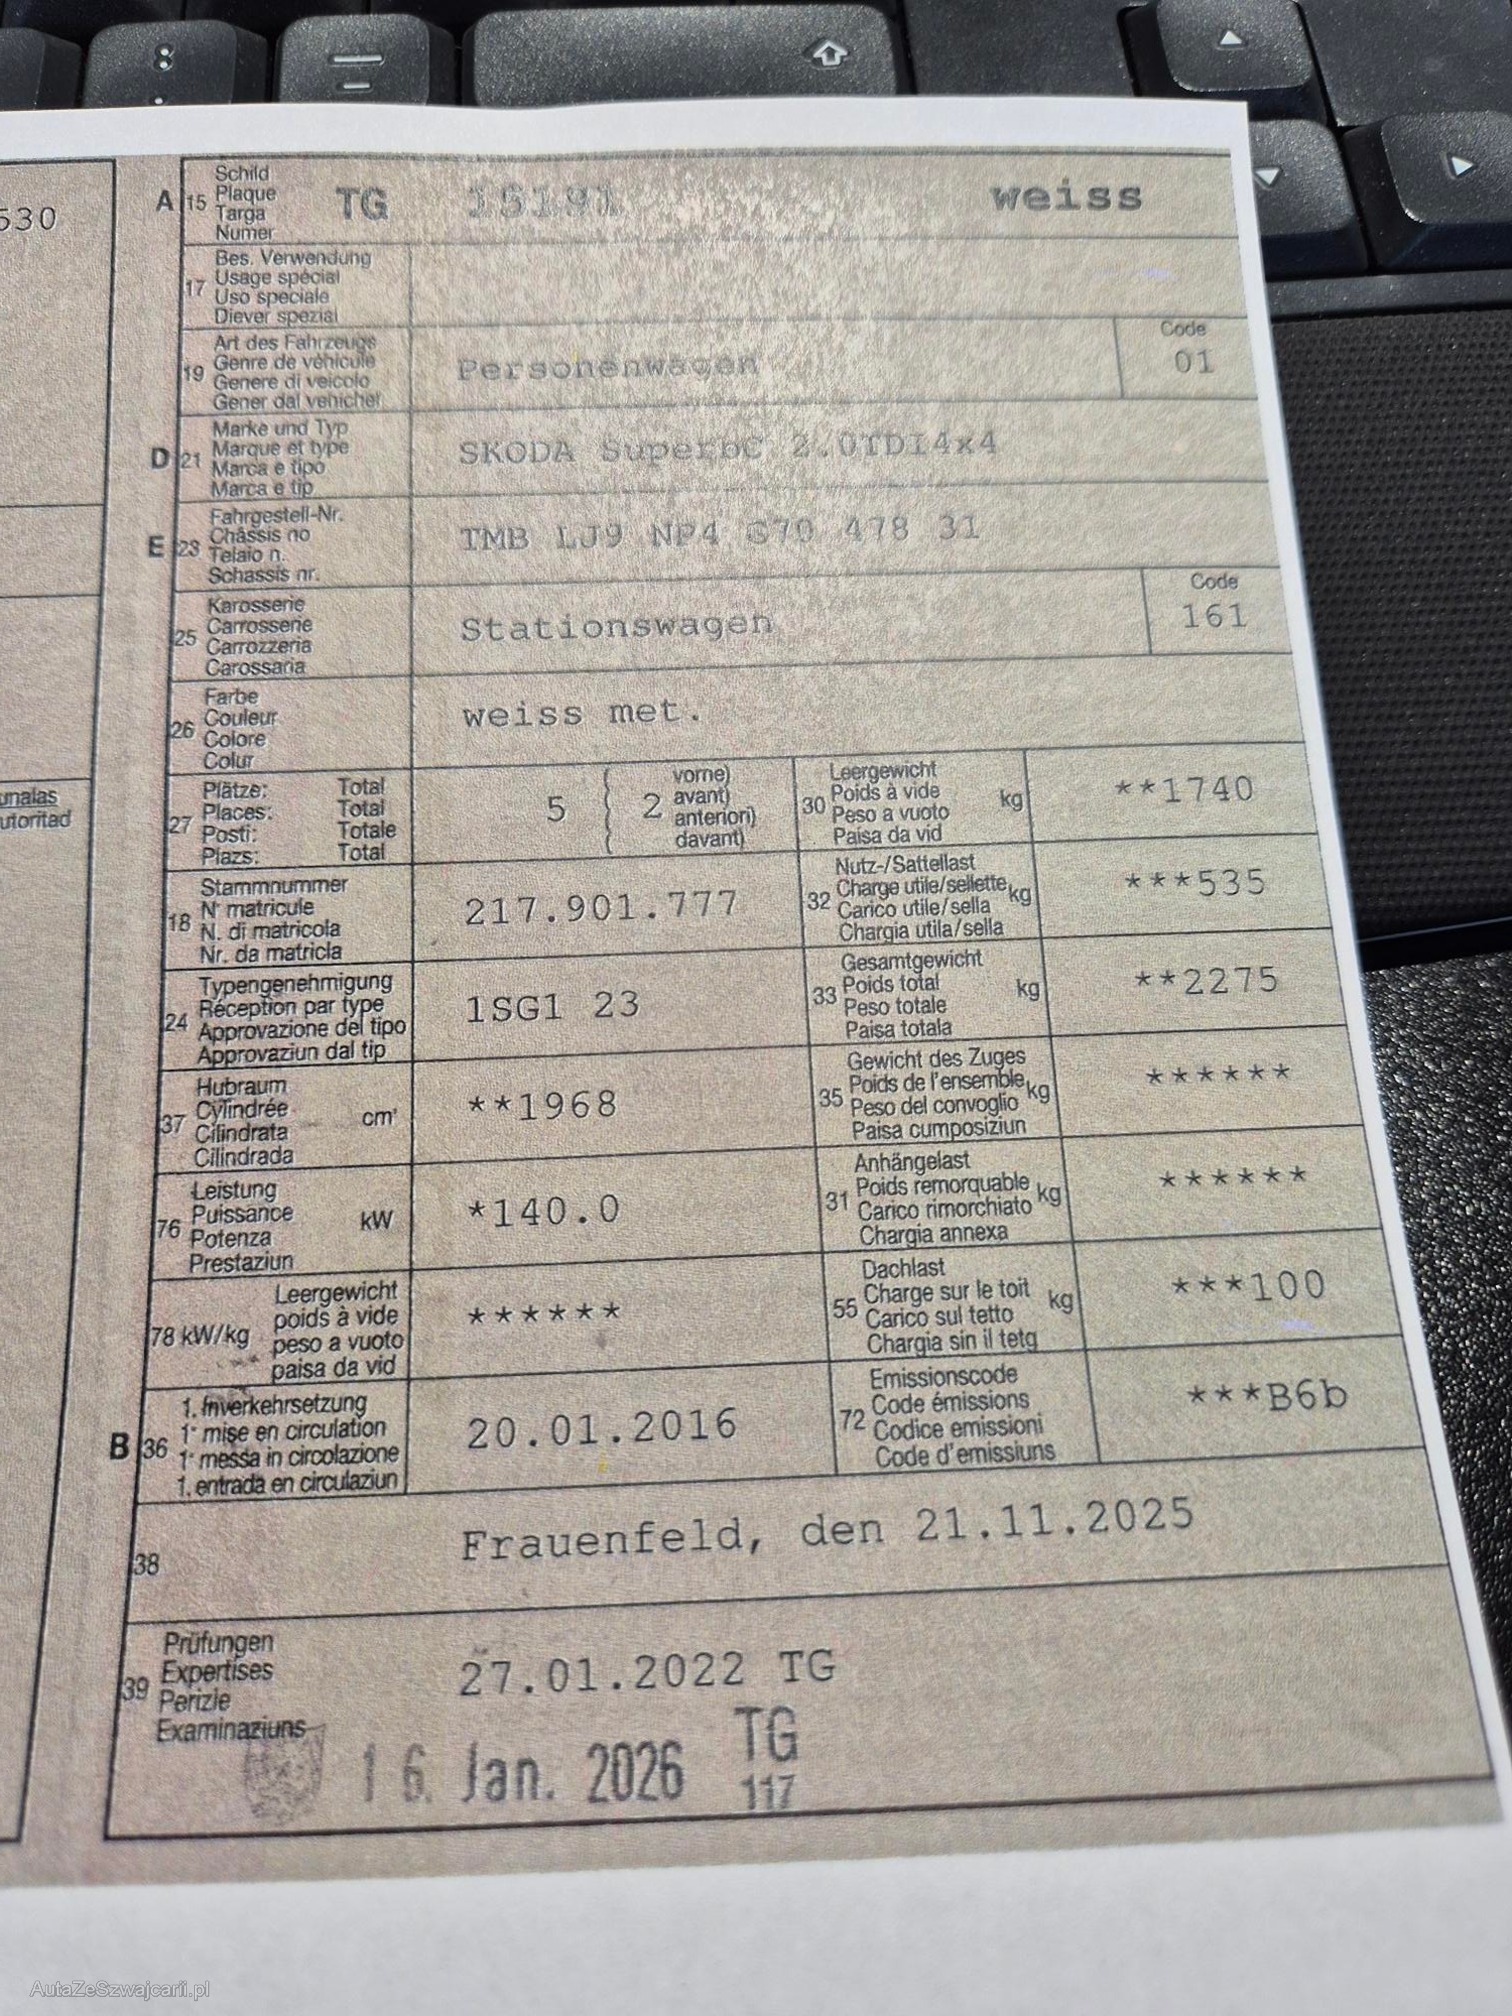 530
unalas
utoritad
A 15 Schild
Plaque
Targa
Numer
TG 15191 weiss
17 Bes. Verwendung
Usage spécial
Uso speciale
Diever spezial
19 Art des Fahrzeugs
Genre de véhicule
Genere di veicolo
Gener dal vehichel
Personenwagen
Code
01
D 21 Marke und Typ
Marque et type
Marca e tipo
Marca e tip
SKODA SuperbC 2.0TDI4x4
E 23 Fahrgestell-Nr.
Châssis no
Telaio n.
Schassis nr.
TMB LJ9 NP4 G70 478 31
25 Karosserie
Carrosserie
Carrozzeria
Carossaria
Stationswagen
Code
161
26 Farbe
Couleur
Colore
Colur
weiss met.
27 Plätze: Total
Places: Total
Posti: Totale
Plazs: Total
5 2 vorne)
avant)
anteriori)
davant)
30 Leergewicht
Poids à vide
Peso a vuoto
Paisa da vid
kg
**1740
18 Stammnummer
N° matricule
N. di matricola
Nr. da matricla
217.901.777
32 Nutz-/Sattellast
Charge utile/sellette
Carico utile/sella
Chargia utila/sella
kg
***535
24 Typengenehmigung
Réception par type
Approvazione del tipo
Approvaziun dal tip
1SG1 23
33 Gesamtgewicht
Poids total
Peso totale
Paisa totala
kg
**2275
37 Hubraum
Cylindrée
Cilindrata
Cilindrada
cm³
**1968
35 Gewicht des Zuges
Poids de l'ensemble
Peso del convoglio
Paisa cumposiziun
kg
******
76 Leistung
Puissance
Potenza
Prestaziun
kW
*140.0
31 Anhängelast
Poids remorquable
Carico rimorchiato
Chargia annexa
kg
******
78 kW/kg Leergewicht
poids à vide
peso a vuoto
paisa da vid
******
55 Dachlast
Charge sur le toit
Carico sul tetto
Chargia sin il tetg
kg
***100
B 36 1. Inverkehrsetzung
1re mise en circulation
1a messa in circolazione
1. entrada en circulaziun
20.01.2016
72 Emissionscode
Code émissions
Codice emissioni
Code d'emissiuns
***B6b
38 Frauenfeld, den 21.11.2025
39 Prüfungen
Expertises
Perizie
Examinaziuns
27.01.2022 TG
16. Jan. 2026 TG
117
AutaZeSzwajcarii.pl